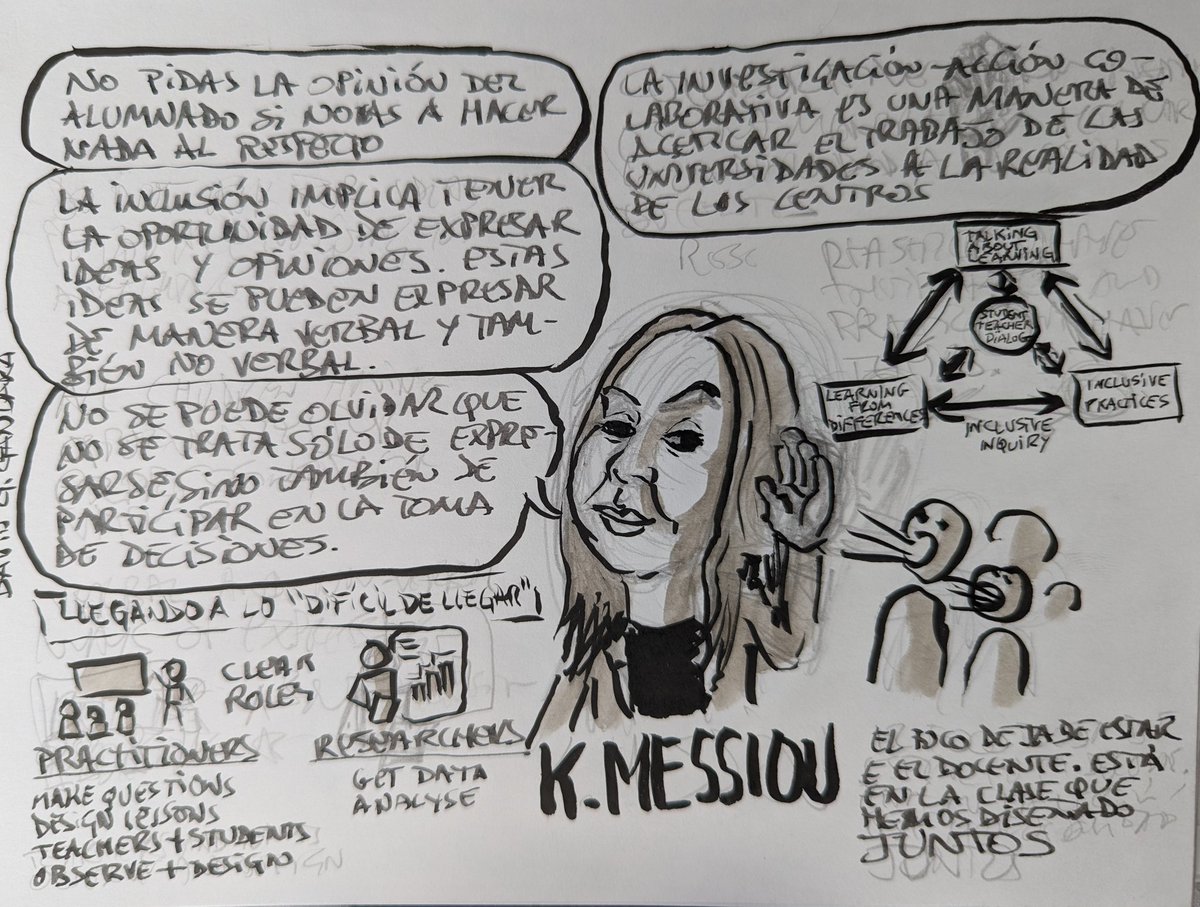 NO PIDAS LA OPINIÓN DEL
ALUMNADO SI NO VAS A HACER
NADA AL RESPECTO
LA INCLUSIÓN IMPLICA TENER
LA OPORTUNIDAD DE EXPRESAR
IDEAS Y OPINIONES. ESTAS
IDEAS SE PUEDEN EXPRESAR
DE MANERA VERBAL Y TAM-
BIÉN NO VERBAL.
NO SE PUEDE OLVIDAR QUE
NO SE TRATA SÓLO DE EXPRE-
SARSE, SINO TAMBIÉN DE
PARTICIPAR EN LA TOMA
DE DECISIONES.
LA INVESTIGACIÓN-ACCIÓN CO-
LABORATIVA ES UNA MANERA DE
ACERCAR EL TRABAJO DE LAS
UNIVERSIDADES A LA REALIDAD
DE LOS CENTROS
TALKING
ABOUT
LEARNING
STUDENT
TEACHER
DIALOG
LEARNING
FROM
DIFFERENCES
INCLUSIVE
PRACTICES
INCLUSIVE
INQUIRY
LLEGANDO A LO "DIFICIL DE LLEGAR"
CLEAR
ROLES
PRACTITIONERS
MAKE QUESTIONS
DESIGN LESSONS
TEACHERS + STUDENTS
OBSERVE + DESIGN
RESEARCHERS
GET DATA
ANALYSE
K. MESSIOU
EL FOCO DEJA DE ESTAR
E EL DOCENTE. ESTÁ
EN LA CLASE QUE
HEMOS DISEÑADO
JUNTOS